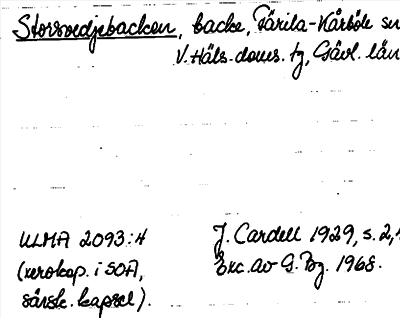 Storsvedjebacken, backe, Färila-Kårböle sn
V. Häls. doms. tg, Gävl. län
ULMA 2093:4
(xerokop. i SOA,
särsk. kapsel).
J. Cardell 1929, s. 2,
Exc. av G. Bg. 1968.